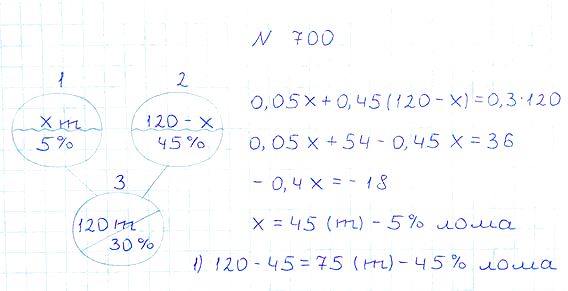 N 700
1
2
x т
5%
120 - x
45%
3
120 т
30%
0,05x + 0,45(120 - x) = 0,3·120
0,05x + 54 - 0,45x = 36
- 0,4x = - 18
x = 45 (т) - 5% лома
1) 120 - 45 = 75 (т) - 45% лома